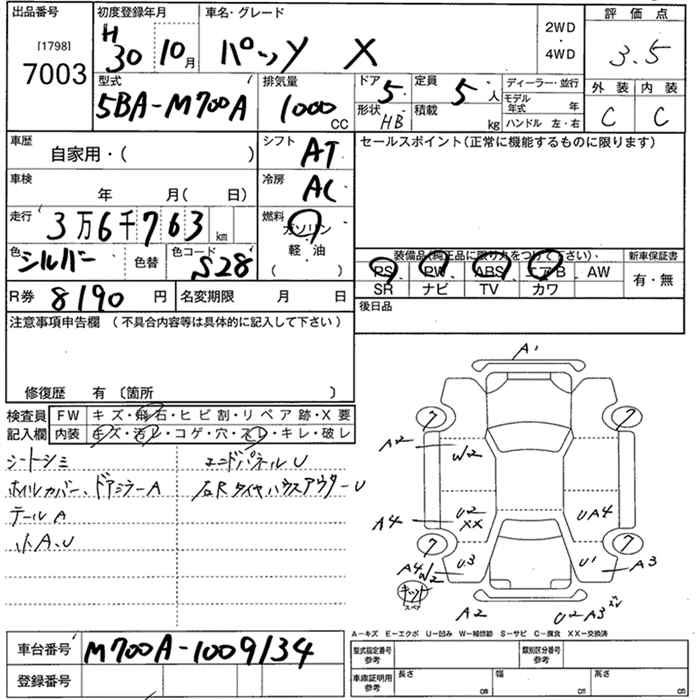 出品番号 初度登録年月 車名・グレード 2WD・4WD 評価点
[1798] 7003 H30 10月 パッソ X 3.5
型式 5BA-M700A 排気量 1000 CC ドア 5 定員 5人 ディーラー・並行 外装 内装
形状 HB 積載 kg モデル年式 年 C C
ハンドル 左・右
車歴 自家用・( ) シフト AT セールスポイント(正常に機能するものに限ります)
車検 年 月( 日) 冷房 AC
走行 3万6千763 km 燃料 ガソリン 軽・油 ( )
色 シルバー 色替 色コード S28 装備品(純正品に限り丸をつけて下さい) 新車保証書
PS PW ABS エアB AW 有・無
SR ナビ TV カワ
R券 8190 円 名変期限 月 日 後日品
注意事項申告欄 (不具合内容等は具体的に記入して下さい)
修復歴 有 〔箇所 〕
検査員 FW キズ・飛石・ヒビ割・リペア跡・X要
記入欄 内装 キズ・汚レ・コゲ・穴・スレ・キレ・破レ
シートシミ エンドパネルU
ホイルカバー、ドアミラーA 右Rタイヤハウスアウター U
テールA
小A、U
A1
7 7
A2 W2
A4 U2 XX UA4
7 7
A4 W2 U3 U1 A3
キット スペア
A2 U2 A3
A-キズ E-エクボ U-凹み W-補修跡 S-サビ C-腐食 XX-交換済
車台番号 M700A-1009134 型式指定番号 参考 類別区分番号 参考
登録番号 車庫証明用 参考 長さ cm 幅 cm 高さ cm